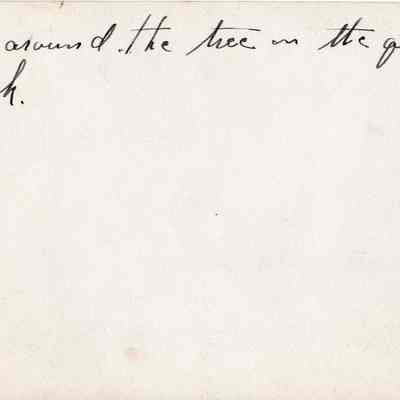 around the tree on the
k.